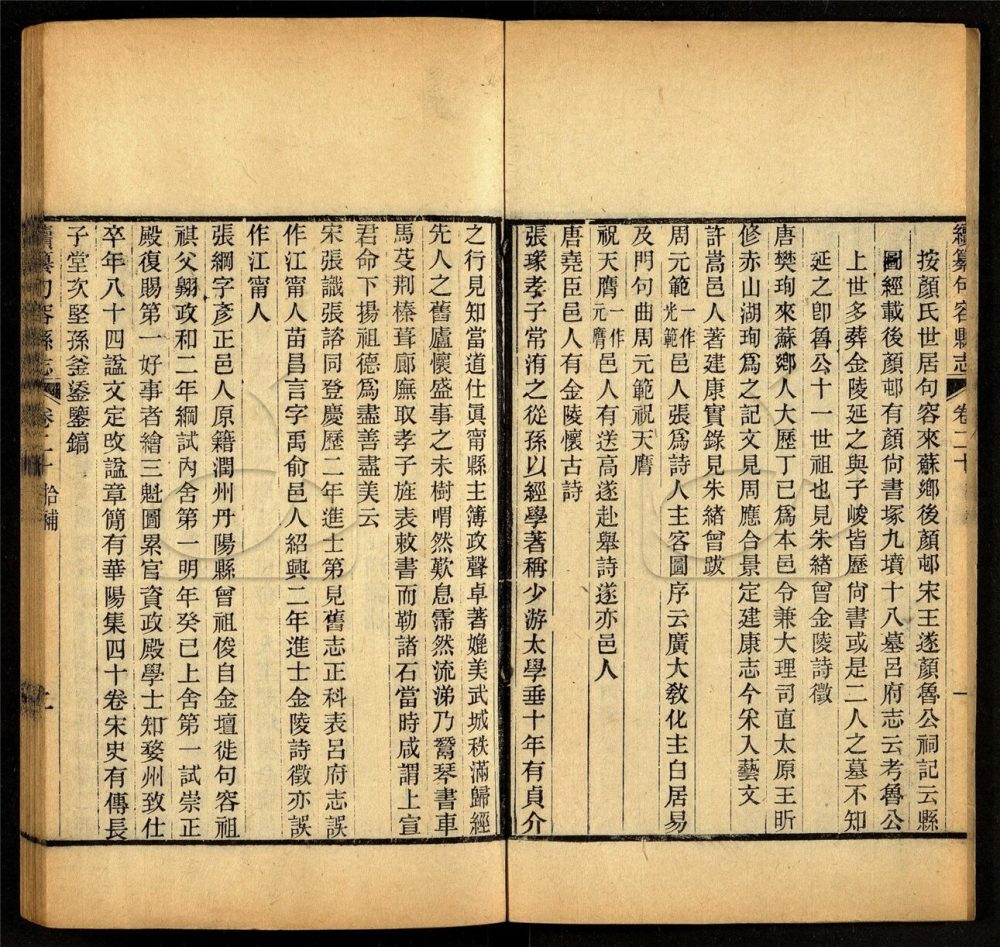 續纂句容縣志 卷二十 一
按顏氏世居句容來蘇鄉後顏邨宋王遂顏魯公祠記云縣
圖經載後顏邨有顏尙書塚九墳十八墓呂府志云考魯公
上世多葬金陵延之與子峻皆歷尙書或是二人之墓不知
延之卽魯公十一世祖也見朱緒曾金陵詩徵
唐樊珣來蘇鄉人大歷丁巳爲本邑令兼大理司直太原王昕
修赤山湖珣爲之記文見周應合景定建康志今采入藝文
許嵩邑人著建康實錄見朱緒曾跋
周元範一作光範邑人張爲詩人主客圖序云廣大敎化主白居易
及門句曲周元範祝天膺
祝天膺一作元膺邑人有送高遂赴舉詩遂亦邑人
唐堯臣邑人有金陵懷古詩
張琭孝子常洧之從孫以經學著稱少游太學垂十年有貞介
之行見知當道仕眞甯縣主簿政聲卓著媲美武城秩滿歸經
先人之舊廬懷盛事之未樹喟然歎息霈然流涕乃鬻琴書車
馬芟荆榛葺廊廡取孝子旌表敕書而勒諸石當時咸謂上宣
君命下揚祖德爲盡善盡美云
宋張識張諮同登慶歷二年進士第見舊志正科表呂府志誤
作江甯人苗昌言字禹俞邑人紹興二年進士金陵詩徵亦誤
作江甯人
張綱字彥正邑人原籍潤州丹陽縣曾祖俊自金壇徙句容祖
祺父翺政和二年綱試內舍第一明年癸巳上舍第一試崇正
殿復賜第一好事者繪三魁圖累官資政殿學士知婺州致仕
卒年八十四諡文定攺諡章簡有華陽集四十卷宋史有傳長
子堂次堅孫釜鋈鑒鎬
續纂句容縣志 卷二十 拾補